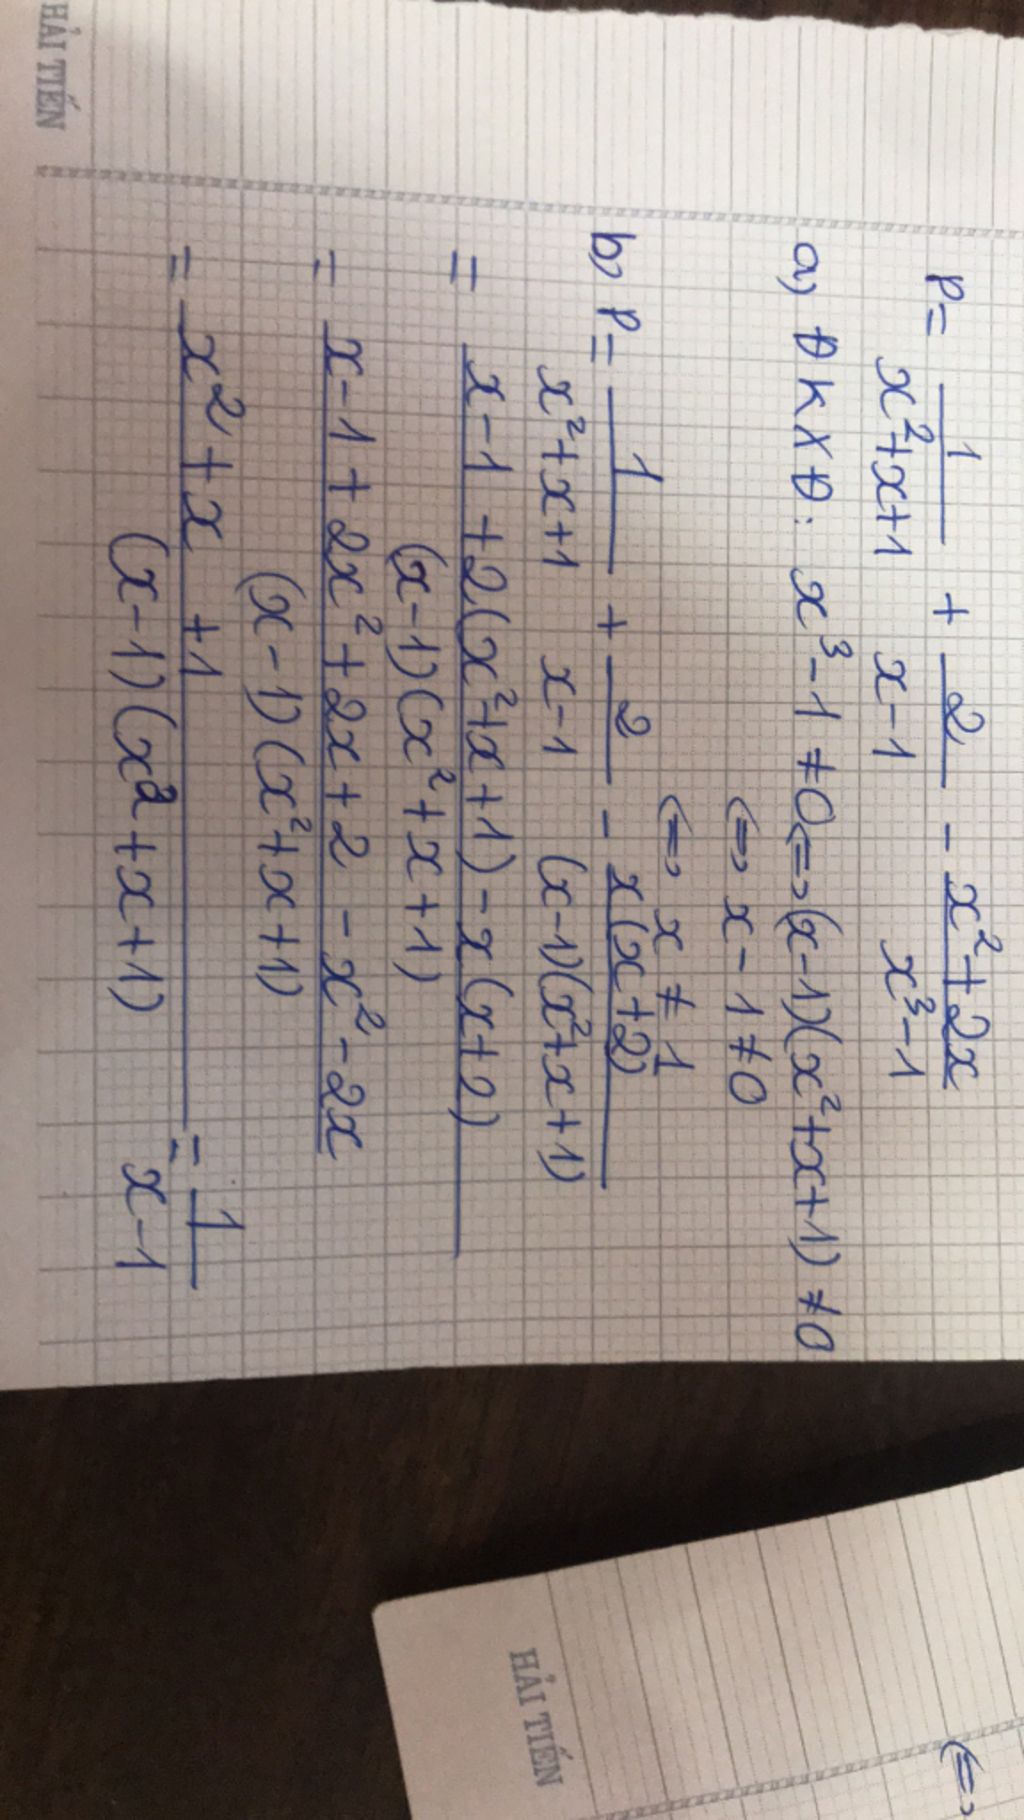 P = 1/(x²+x+1) + 2/(x-1) - (x²+2x)/(x³-1)
a) ĐKXĐ: x³-1≠0 <=> (x-1)(x²+x+1)≠0
<=> x-1≠0
<=> x≠1
b) P = 1/(x²+x+1) + 2/(x-1) - x(x+2)/((x-1)(x²+x+1))
= (x-1+2(x²+x+1)-x(x+2))/((x-1)(x²+x+1))
= (x-1+2x²+2x+2-x²-2x)/((x-1)(x²+x+1))
= (x²+x+1)/((x-1)(x²+x+1)) = 1/(x-1)
HẢI TIẾN
HẢI TIẾN
<=>